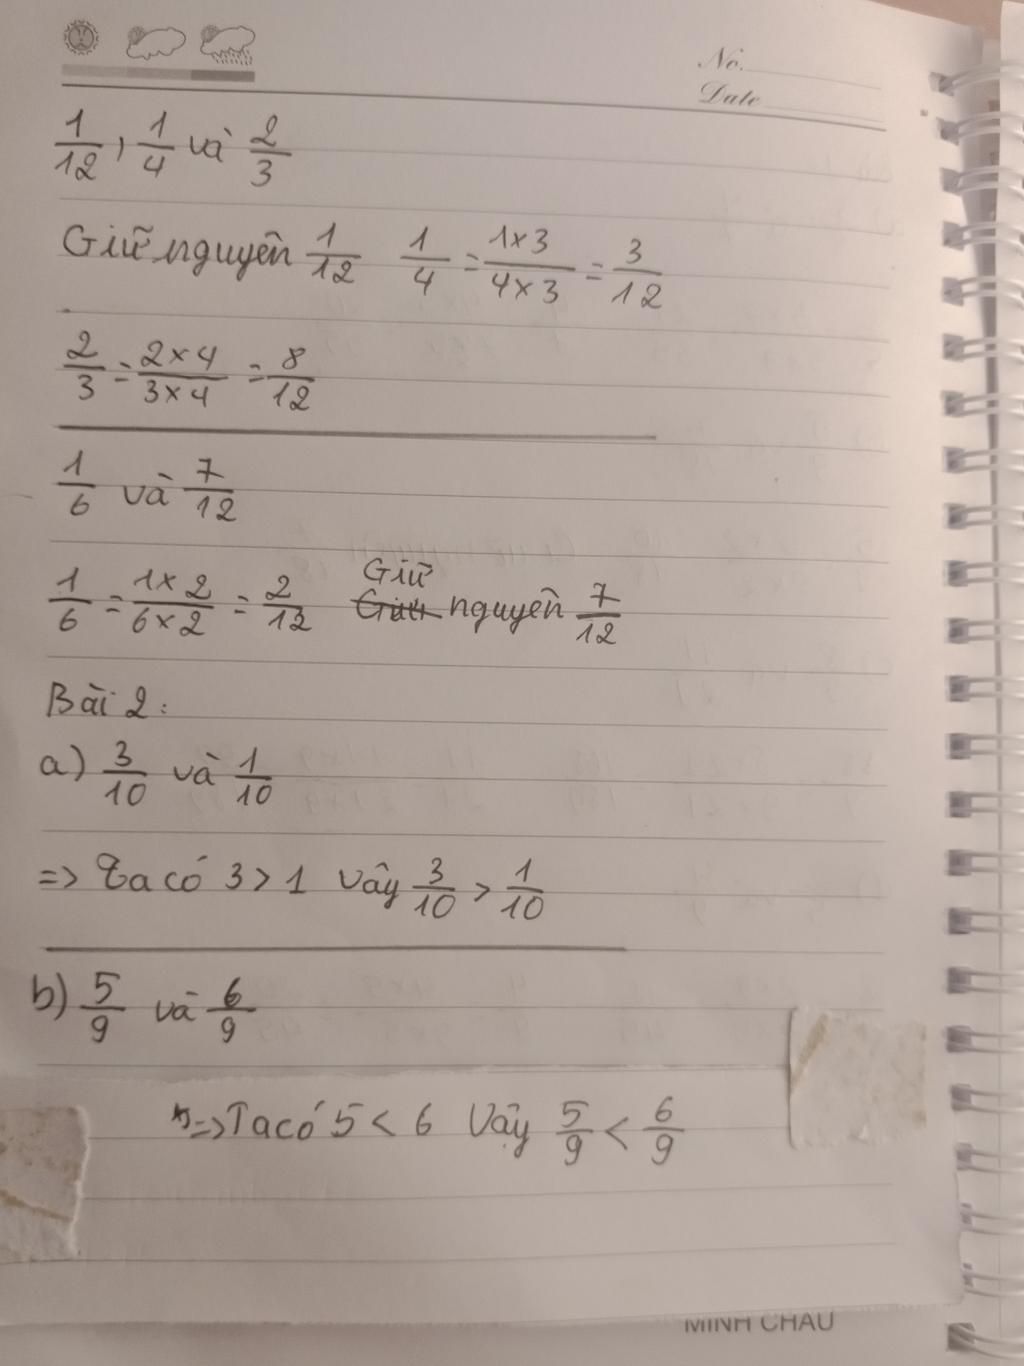 No.
Date
1/12, 1/4 và 2/3
Giữ nguyên 1/12 1/4 = 1×3/4×3 = 3/12
2/3 = 2×4/3×4 = 8/12
1/6 và 7/12
1/6 = 1×2/6×2 = 2/12 Giữ nguyên 7/12
Bài 2:
a) 3/10 và 1/10
=> Ta có 3 > 1 Vây 3/10 > 1/10
b) 5/9 và 6/9
=> Ta có 5 < 6 Vậy 5/9 < 6/9
MINH CHAU